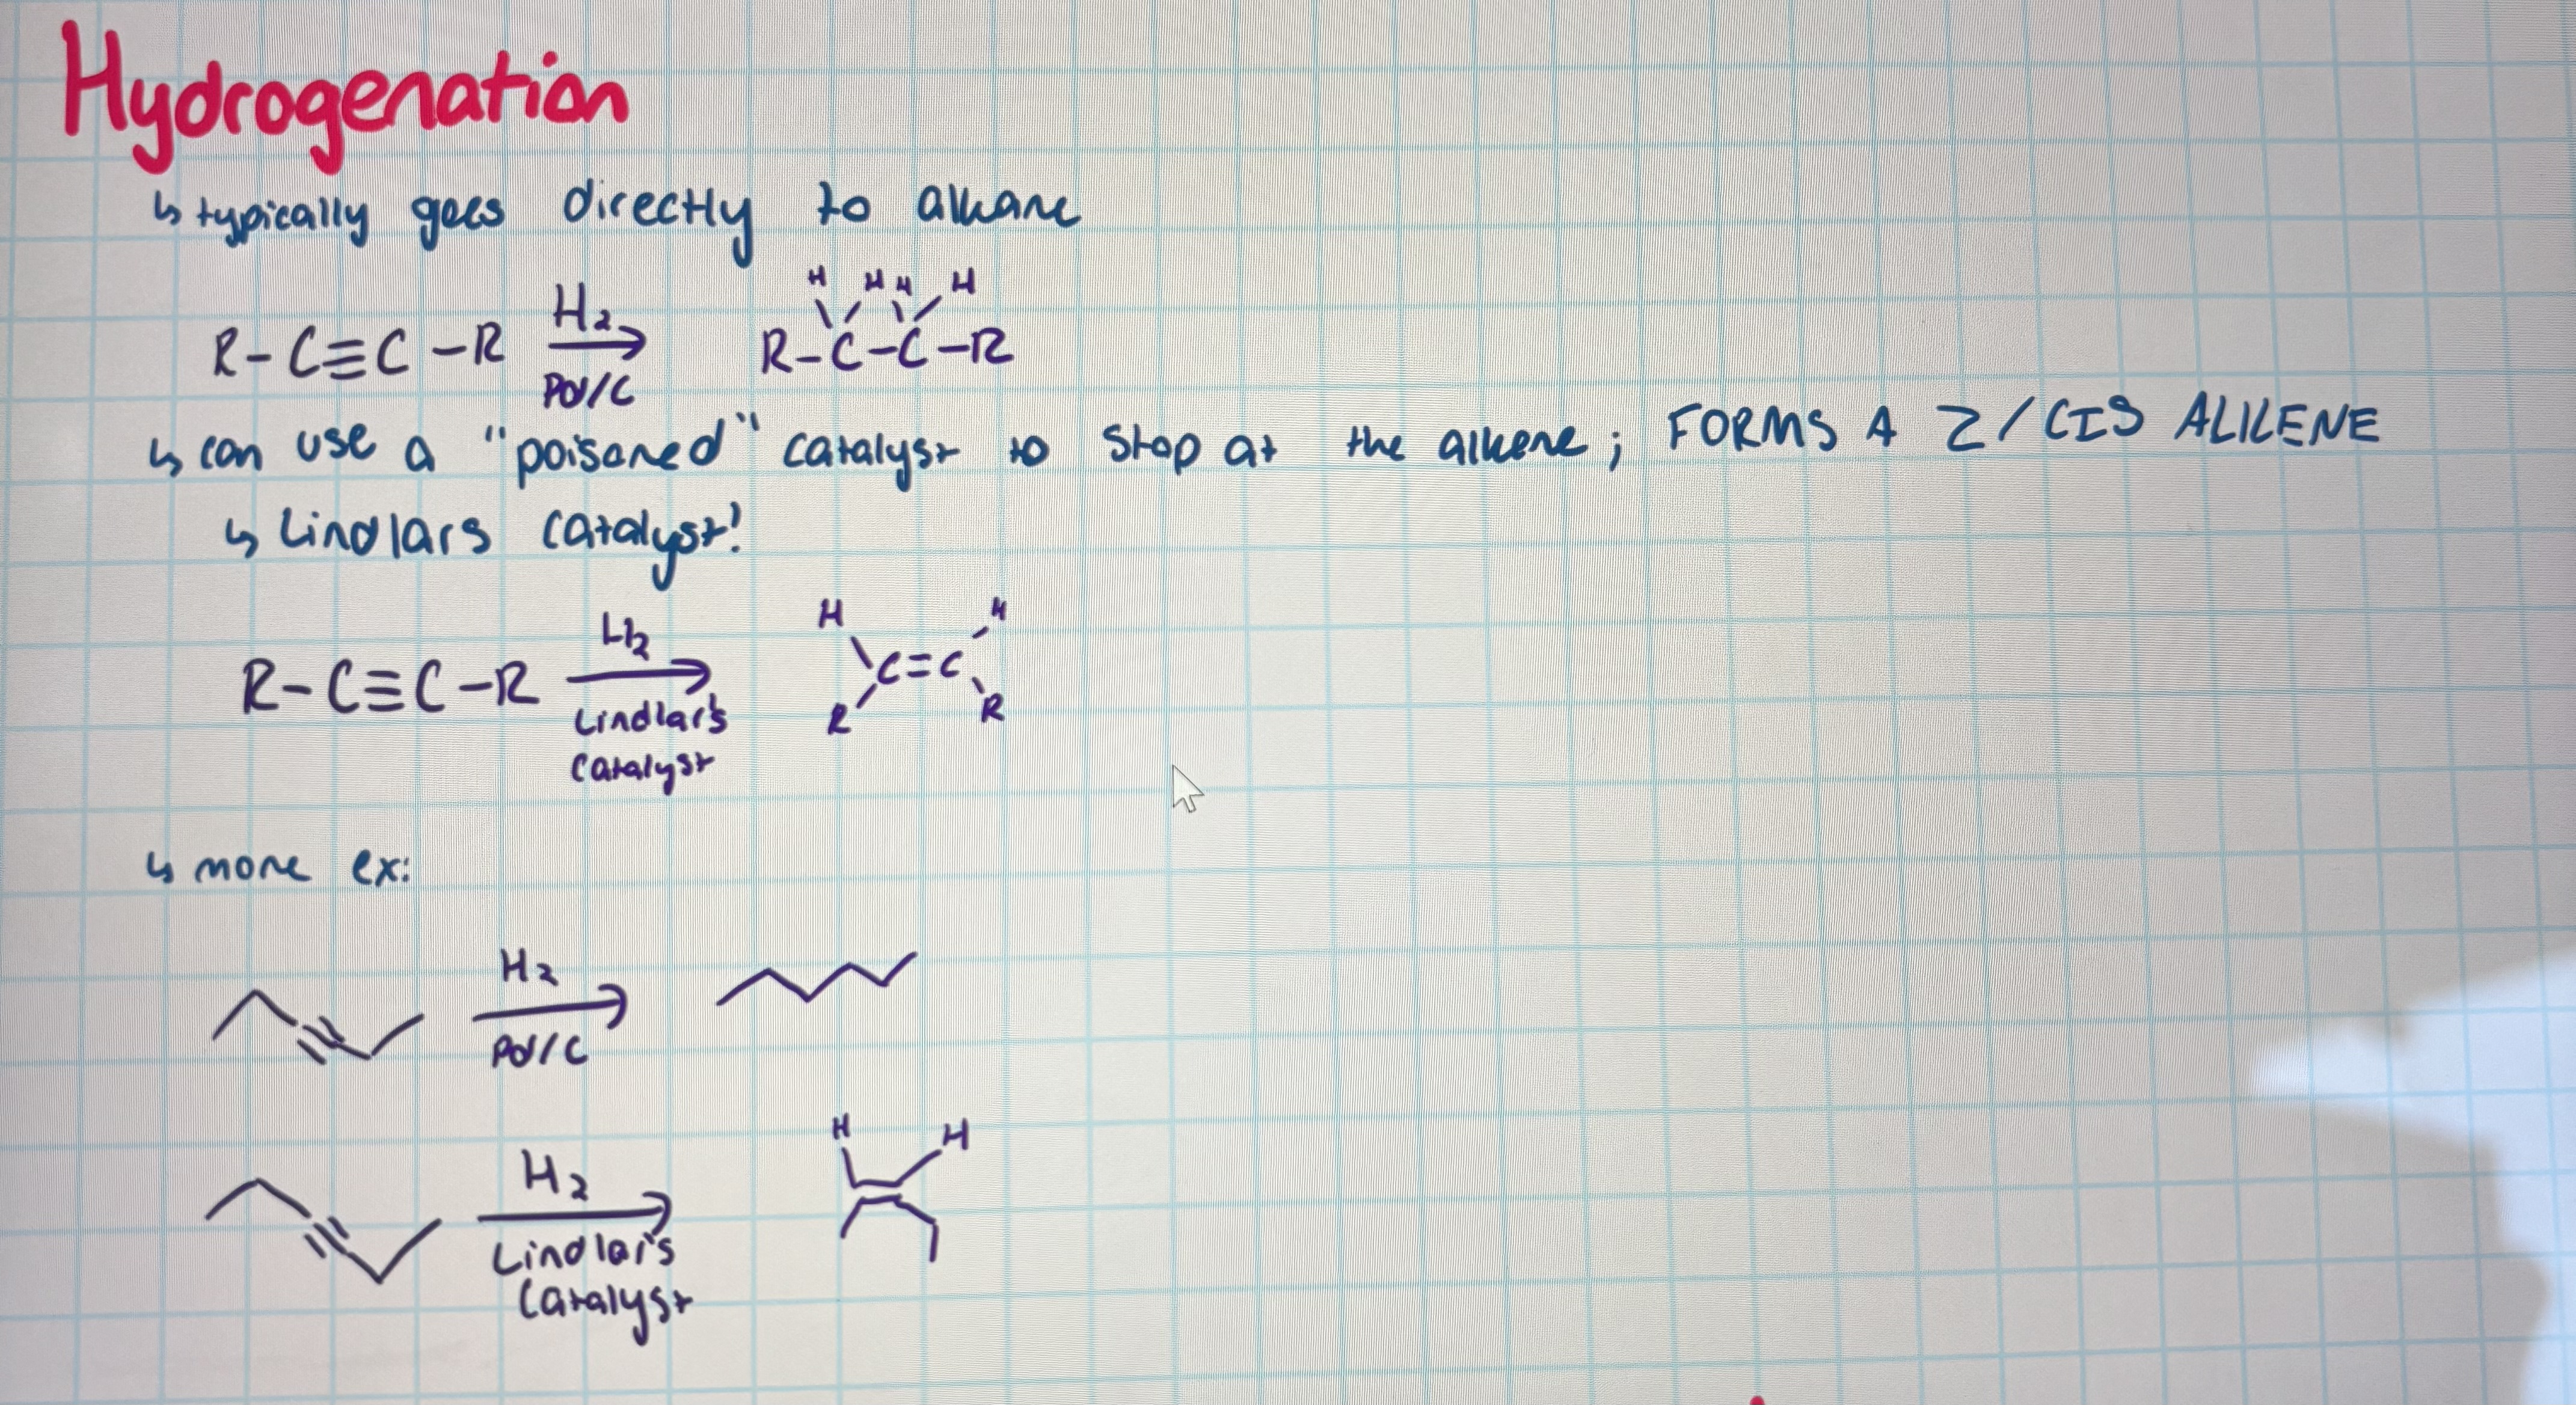 Hydrogenation
↳ typically goes directly to alkane
H H H H
R-C≡C-R H₂ → R-C-C-R
Pd/C
↳ can use a "poisoned" catalyst to stop at the alkene; FORMS A Z/CIS ALKENE
↳ Lindlars catalyst!
H₂ H H
R-C≡C-R → C=C
Lindlar's R R
catalyst
↳ more ex:
H₂
Pd/C
H H
H₂
Lindlar's
Catalyst